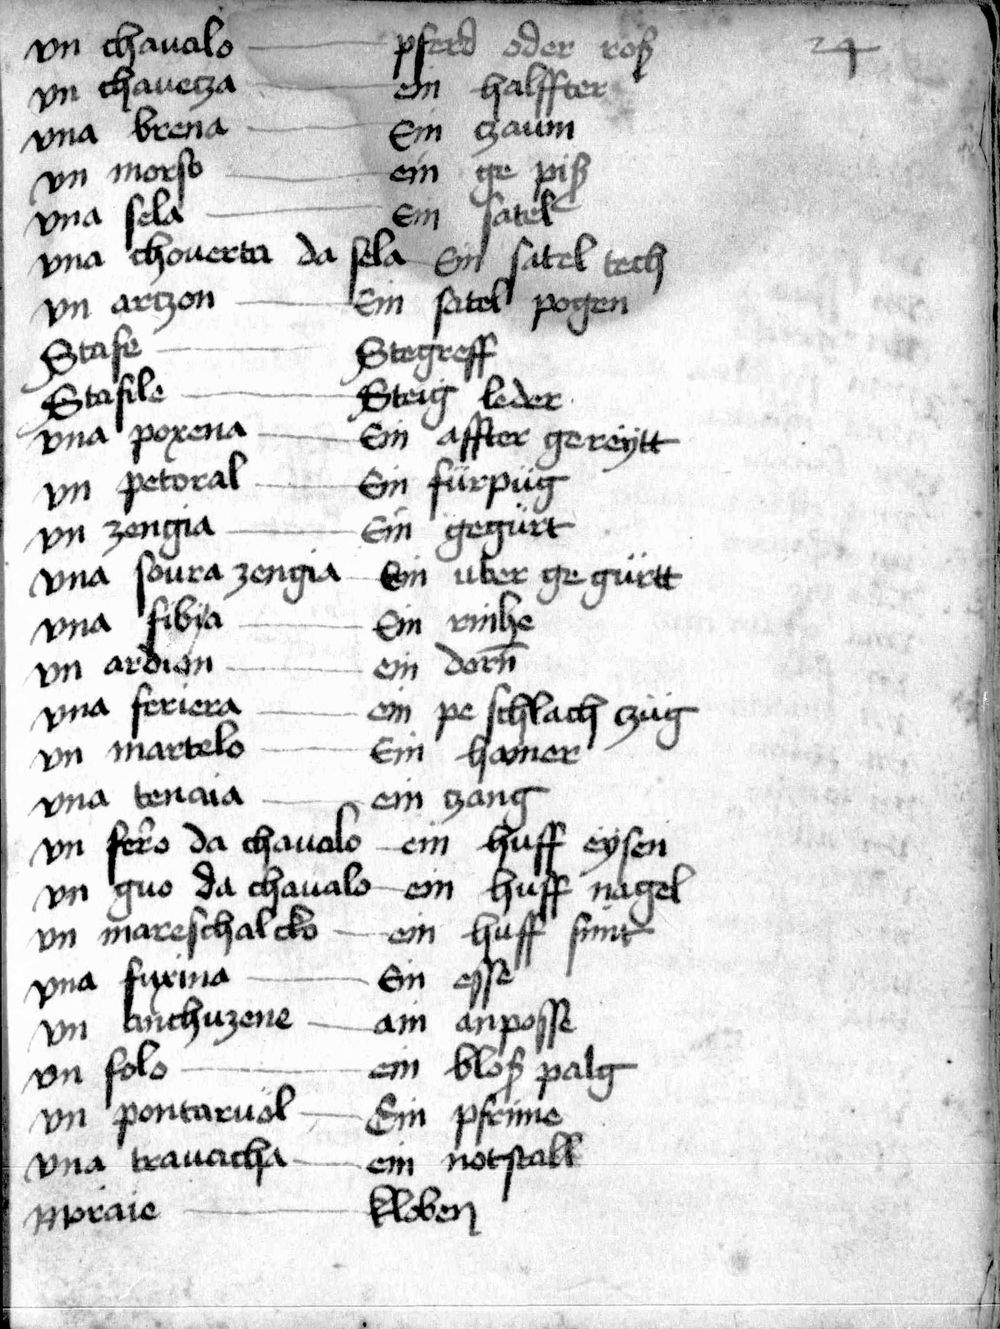 vn chaualo pferd oder roß 24
vn chauetza ein halffter
vna brena Ein tzaum
vn morso ein ge piß
vna sela Ein satel
vna chouerta da sela Ein satel tech
vn artzon Ein satel pogen
Stafe Stegreff
Stafile Steig leder
vna poxena Ein affter gereÿtt
vn petoral Ein fürpüg
vn zengia Ein gegürt
vna soura zengia Ein uber ge gürtt
vna fibia Ein rinke
vn ardion ein dorn̄
vna feriera ein pe schlach tzüg
vn martelo Ein hamer
vna tenaia ein tzang
vn fero da chaualo ein huff eÿsen
vn guo da chaualo ein huff nagel
vn mareschalcko ein huff smit
vna fuxina Ein esse
vn anchuzene ain anposse
vn folo ein bloß palg
vn pontaruol Ein pfrime
vna trauacha ein notstall
Moraie kloben